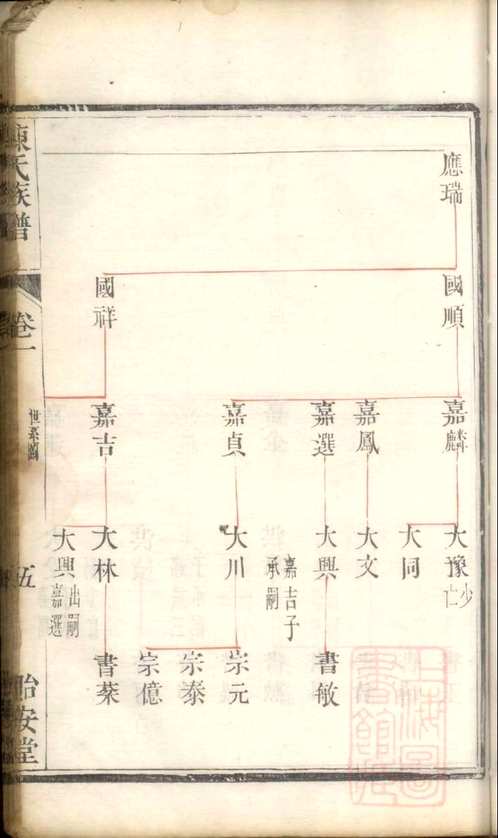 應瑞
國順
國祥
嘉麟
嘉鳳
嘉選
嘉貞
嘉吉
大豫
少亡
大同
大文
大興
嘉吉子
承嗣
大川
大林
大興
出嗣
嘉選
書敏
宗元
宗泰
宗億
書棻
陳氏族譜
卷一
世系圖
五
怡安堂
上海圖書館藏